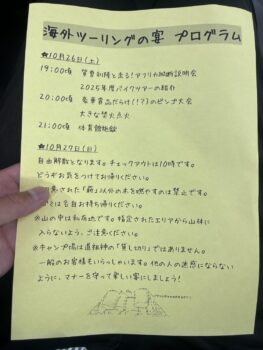 海外ツーリングの宴 プログラム
★10月26日(土)
19:00頃 賀曽利隆と走る!アフリカ縦断説明会
2025年度バイクツアーの紹介
20:00頃 豪華賞品だらけ(!?)のビンゴ大会
大きな焚火点火
21:00頃
★10月27日(日)
自由解散となります。チェックアウトは10時です。
どうぞお気をつけてお帰りください。
された「薪」以外の木を燃やすのは禁止です。
は各自お持ち帰りください。
※山の中は私有地です。指定されたエリアから山林に
入らないよう、ご注意ください。
※キャンプ場は道祖神の「貸し切り」ではありません。
一般のお客様もいらっしゃいます。他の人の迷惑にならない
ように、マナーを守って楽しい宴にしましょう!